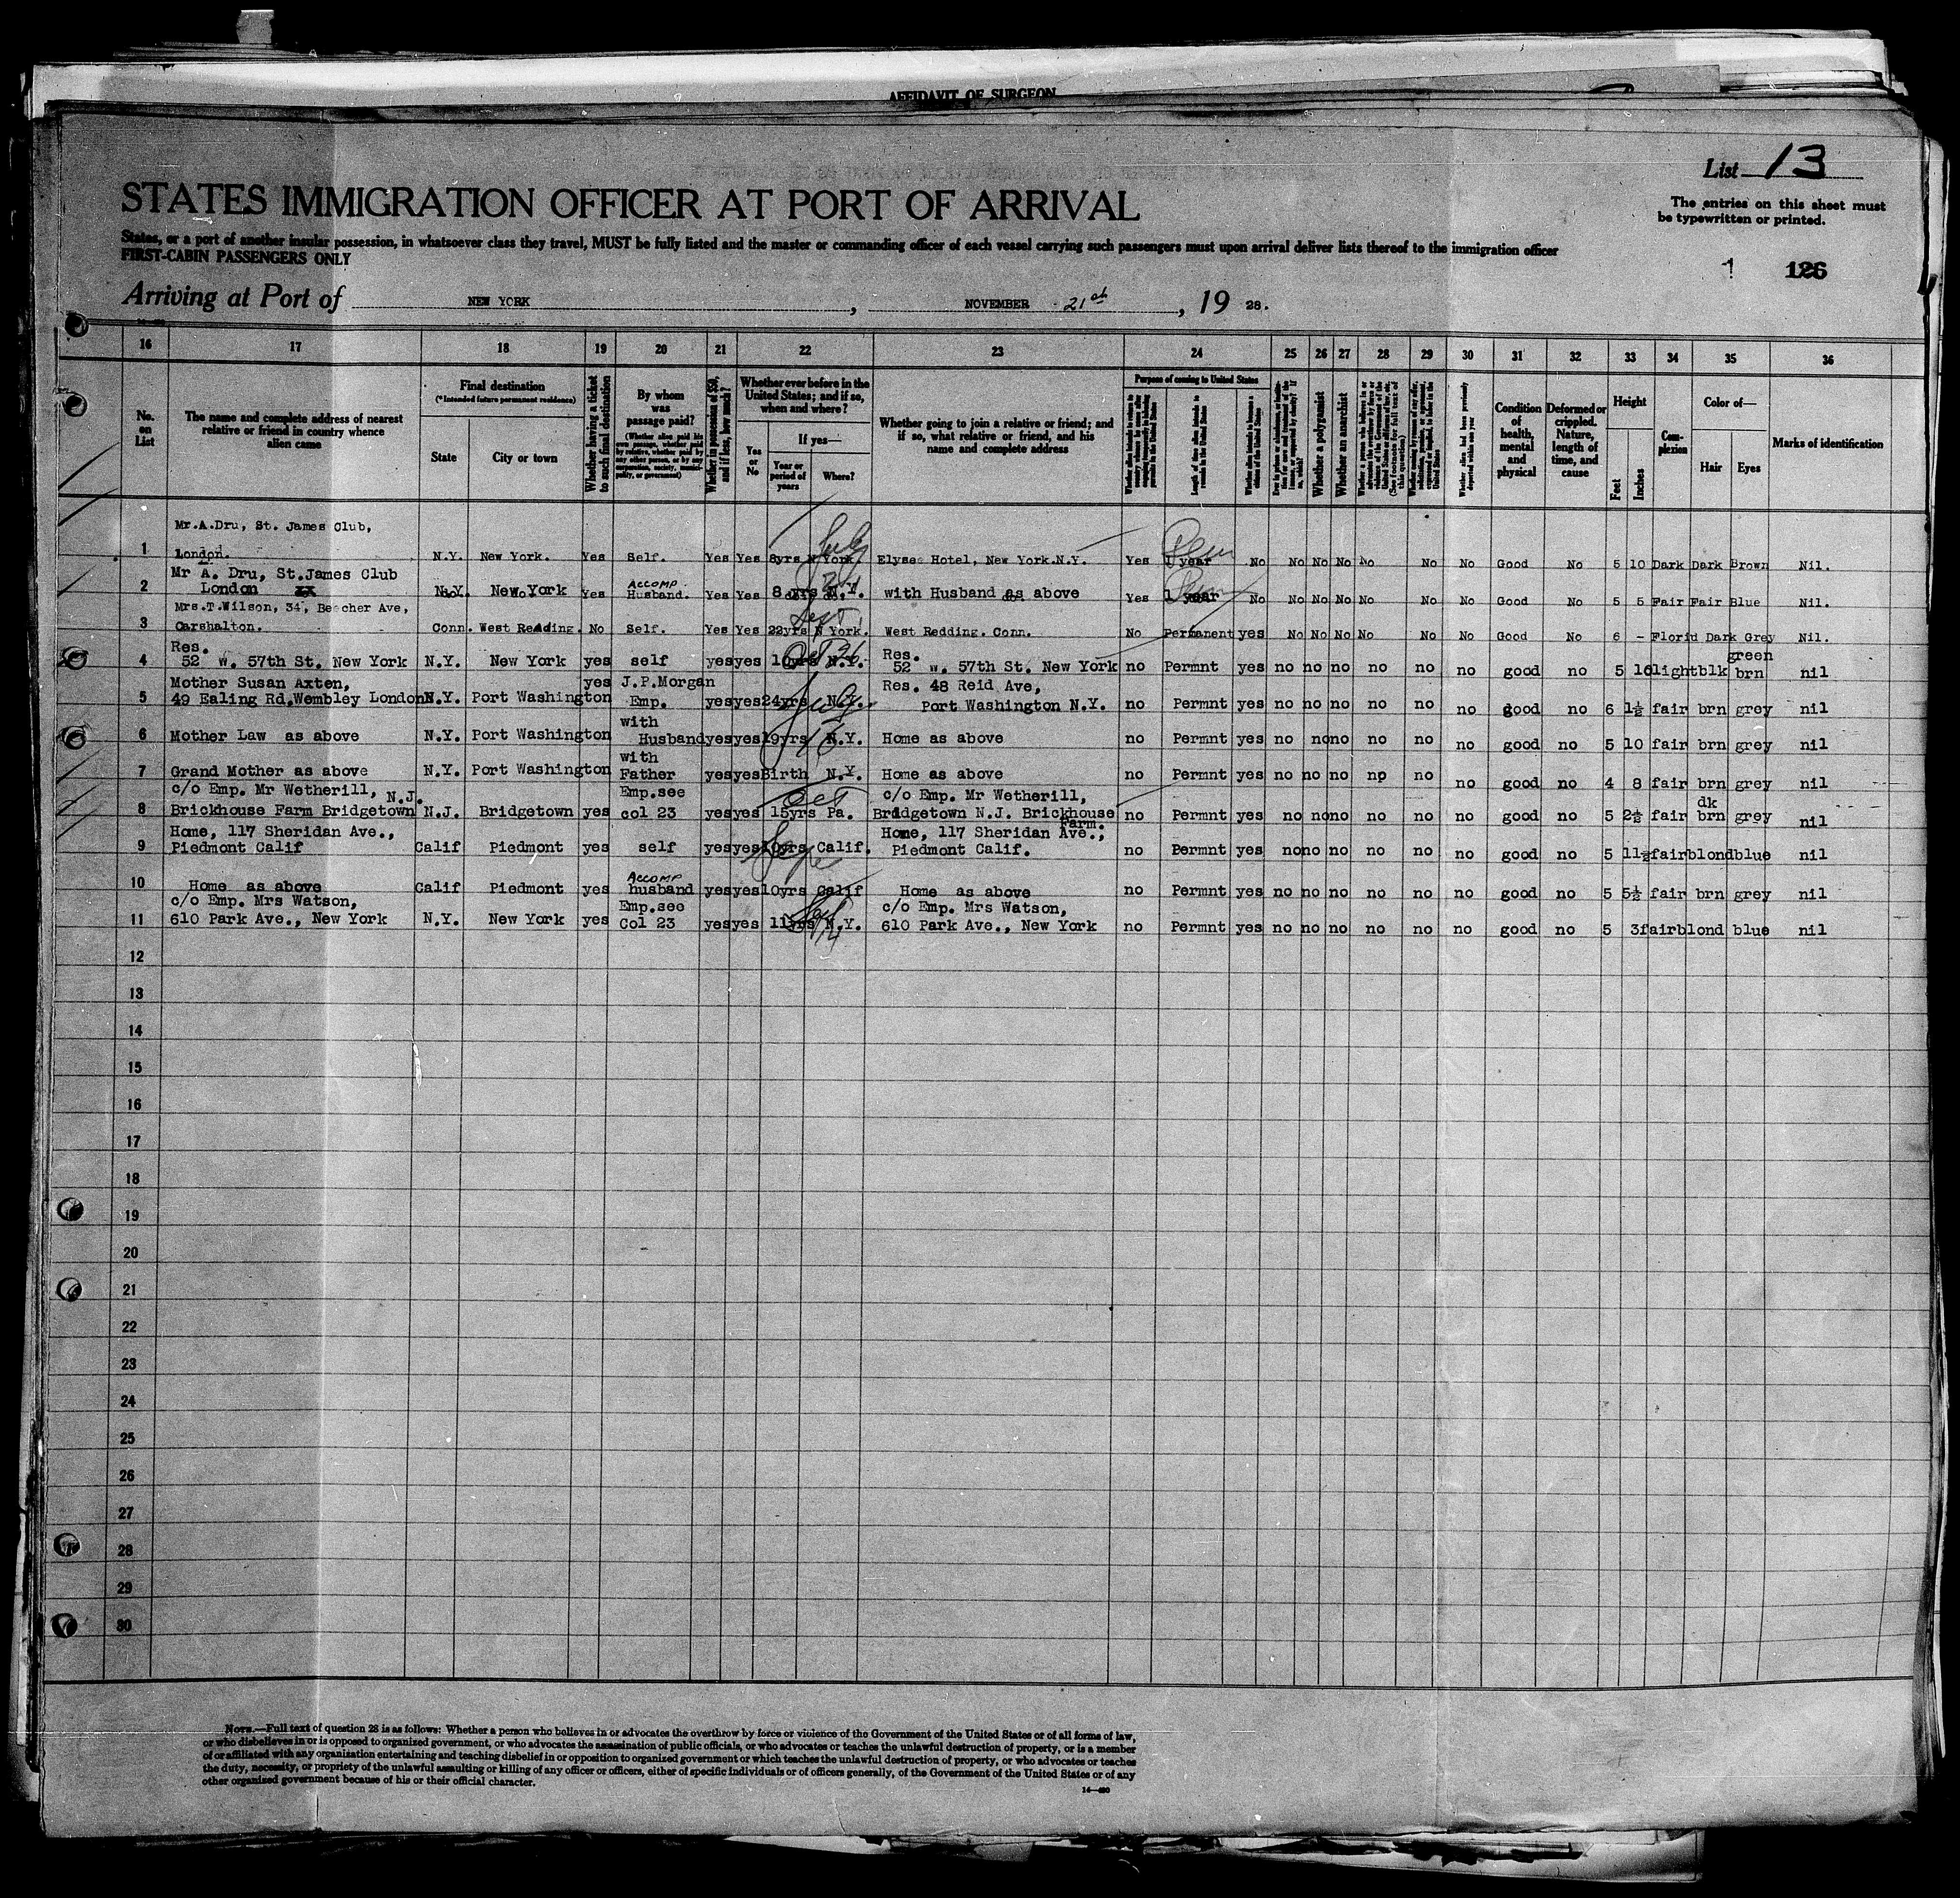 AFFIDAVIT OF SURGEON
List 13
STATES IMMIGRATION OFFICER AT PORT OF ARRIVAL
The entries on this sheet must
be typewritten or printed.
States, or a port of another insular possession, in whatsoever class they travel, MUST be fully listed and the master or commanding officer of each vessel carrying such passengers must upon arrival deliver lists thereof to the immigration officer
FIRST-CABIN PASSENGERS ONLY
126
Arriving at Port of NEW YORK, NOVEMBER 21st, 19 28.
16 17 18 19 20 21 22 23 24 25 26 27 28 29 30 31 32 33 34 35 36
No. on List
The name and complete address of nearest relative or friend in country whence alien came
Final destination
(*Intended future permanent residence)
State
City or town
Whether having a ticket to such final destination
By whom was passage paid?
(Whether alien paid his own passage, whether paid by relative, whether paid by any other person, or by any corporation, society, municipality, or government)
Whether in possession of $50, and if less, how much?
Whether ever before in the United States; and if so, when and where?
Yes or No
If yes—
Year or period of years
Where?
Whether going to join a relative or friend; and if so, what relative or friend, and his name and complete address
Purpose of coming to United States
Length of time alien intends to remain in the United States
Whether a polygamist
Whether an anarchist
Condition of health, mental and physical
Deformed or crippled. Nature, length of time, and cause
Height
Feet
Inches
Complexion
Color of—
Hair
Eyes
Marks of identification
Mr.A.Dru, St. James Club,
1 London. N.Y. New York. Yes Self. Yes Yes 8yrs N York July Elysee Hotel, New York.N.Y. Yes 1 year No No No No No No No Good No 5 10 Dark Dark Brown Nil.
Mr A. Dru, St.James Club
2 London N.Y. New York Yes ACCOMP. Husband. Yes Yes 8 yrs N.Y. with Husband as above Yes 1 year No No No No No No No Good No 5 5 Fair Fair Blue Nil.
Mrs.T.Wilson, 34, Beecher Ave,
3 Carshalton. Conn. West Redding. No Self. Yes Yes 22yrs N York. Sept West Redding. Conn. No Permanent yes No No No No No No Good No 6 - Florid Dark Grey Nil.
Res. Res. green
4 52 w. 57th St. New York N.Y. New York yes self yes yes 10yrs N.Y. 52 w. 57th St. New York no Permnt yes no no no no no no good no 5 10 light blk brn nil
Mother Susan Axten, yes J.P.Morgan Res. 48 Reid Ave,
5 49 Ealing Rd.Wembley London N.Y. Port Washington Emp. yes yes 24yrs N.Y. Port Washington N.Y. no Permnt yes no no no no no no good no 6 1½ fair brn grey nil
with
6 Mother Law as above N.Y. Port Washington Husband yes yes 19yrs N.Y. Home as above no Permnt yes no no no no no no good no 5 10 fair brn grey nil
with
7 Grand Mother as above N.Y. Port Washington Father yes yes Birth N.Y. Home as above no Permnt yes no no no no no no good no 4 8 fair brn grey nil
c/o Emp. Mr Wetherill, N.J. Emp.see c/o Emp. Mr Wetherill, dk
8 Brickhouse Farm Bridgetown N.J. Bridgetown yes col 23 yes yes 15yrs Pa. Oct Bridgetown N.J. Brickhouse Farm. no Permnt yes no no no no no no good no 5 2½ fair brn grey nil
Home, 117 Sheridan Ave., Home, 117 Sheridan Ave.,
9 Piedmont Calif Calif Piedmont yes self yes yes 10yrs Calif. Piedmont Calif. no Permnt yes no no no no no no good no 5 11½ fair blond blue nil
10 Home as above Calif Piedmont yes ACCOMP husband yes yes 10yrs Calif Home as above no Permnt yes no no no no no no good no 5 5½ fair brn grey nil
c/o Emp. Mrs Watson, Emp.see c/o Emp. Mrs Watson,
11 610 Park Ave., New York N.Y. New York yes Col 23 yes yes 11yrs N.Y. 610 Park Ave., New York no Permnt yes no no no no no no good no 5 3 fair blond blue nil
12
13
14
15
16
17
18
19
20
21
22
23
24
25
26
27
28
29
30
NOTE.—Full text of question 28 is as follows: Whether a person who believes in or advocates the overthrow by force or violence of the Government of the United States or of all forms of law,
or who disbelieves in or is opposed to organized government, or who advocates the assassination of public officials, or who advocates or teaches the unlawful destruction of property, or is a member
of or affiliated with any organization entertaining and teaching disbelief in or opposition to organized government or which teaches the unlawful destruction of property, or who advocates or teaches
the duty, necessity, or propriety of the unlawful assaulting or killing of any officer or officers, either of specific individuals or of officers generally, of the Government of the United States or of any
other organized government because of his or their official character.